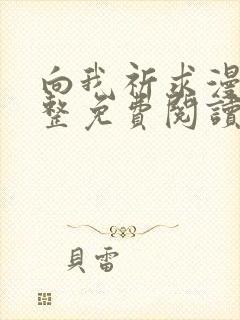 向我祈求漫
整免費閱讀
貝雷